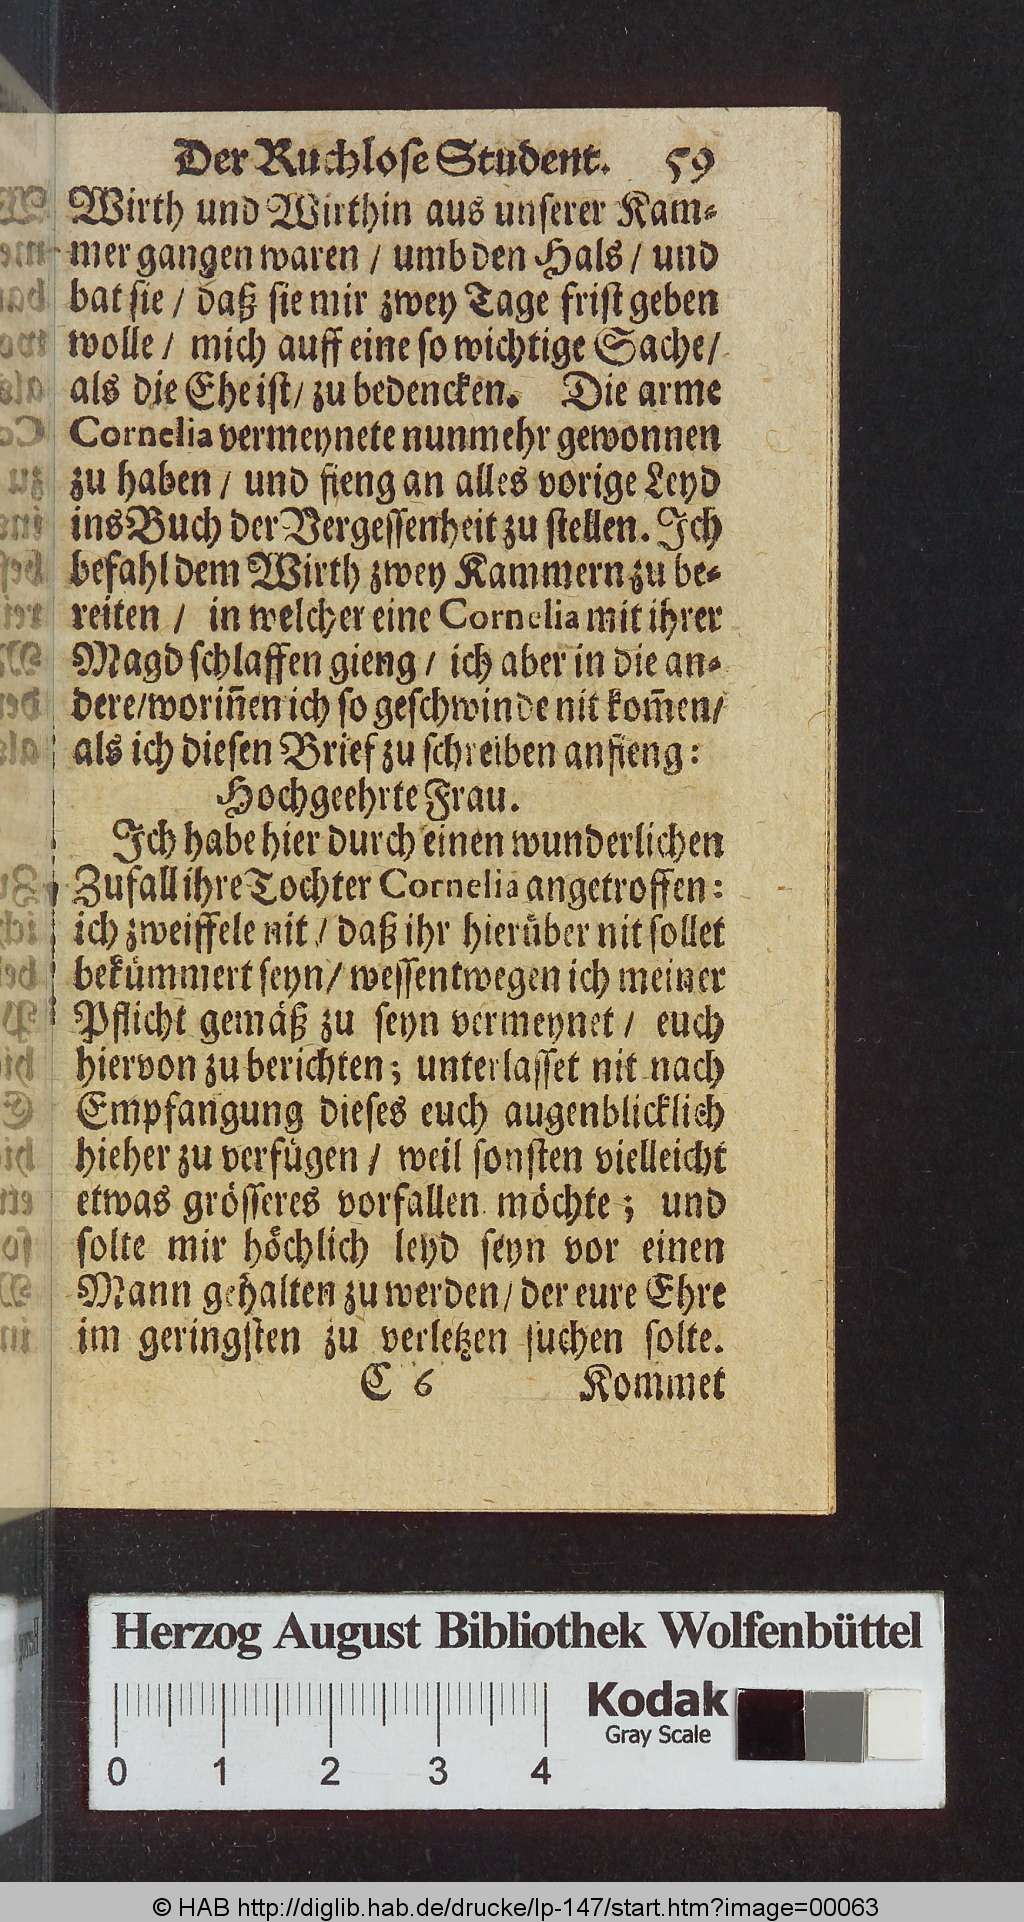 Der Ruchlose Student. 59
Wirth und Wirthin aus unserer Kam-
mer gangen waren / umb den Hals / und
bat sie / daß sie mir zwey Tage frist geben
wolle / mich auff eine so wichtige Sache /
als die Ehe ist / zu bedencken. Die arme
Cornelia vermeynete nunmehr gewonnen
zu haben / und fieng an alles vorige Leyd
ins Buch der Vergessenheit zu stellen. Ich
befahl dem Wirth zwey Kammern zu be-
reiten / in welcher eine Cornelia mit ihrer
Magd schlaffen gieng / ich aber in die an-
dere / woriñen ich so geschwinde nit kom̄en /
als ich diesen Brief zu schreiben anfieng:
Hochgeehrte Frau.
Ich habe hier durch einen wunderlichen
Zufall ihre Tochter Cornelia angetroffen:
ich zweiffele nit / daß ihr hierüber nit sollet
bekümmert seyn / wessentwegen ich meiner
Pflicht gemäß zu seyn vermeynet / euch
hiervon zu berichten; unterlasset nit nach
Empfangung dieses euch augenblicklich
hieher zu verfügen / weil sonsten vielleicht
etwas grösseres vorfallen möchte; und
solte mir höchlich leyd seyn vor einen
Mann gehalten zu werden / der eure Ehre
im geringsten zu verletzen suchen solte.
C 6 Kommet
Herzog August Bibliothek Wolfenbüttel
Kodak
Gray Scale
0 1 2 3 4
© HAB http://diglib.hab.de/drucke/lp-147/start.htm?image=00063